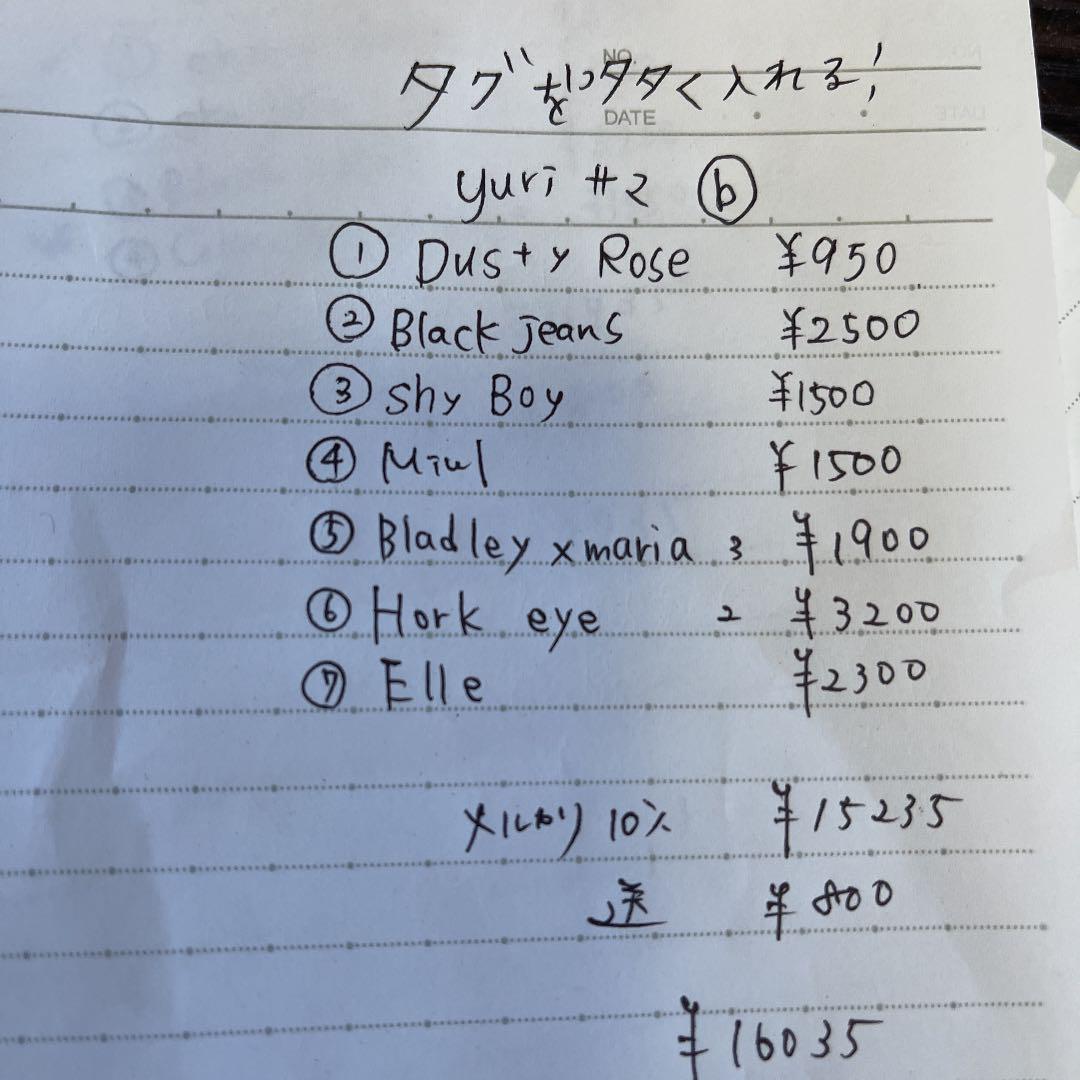 NO.
タグをいっタタく入れる!
DATE
yuri #2 ⓑ
① Dusty Rose ¥950
② Black jeans ¥2500
③ shy Boy ¥1500
④ Miul ¥1500
⑤ Bladley x maria 3 ¥1900
⑥ Hork eye 2 ¥3200
⑦ Elle ¥2300
メルカリ 10% ¥15235
送 ¥800
¥16035